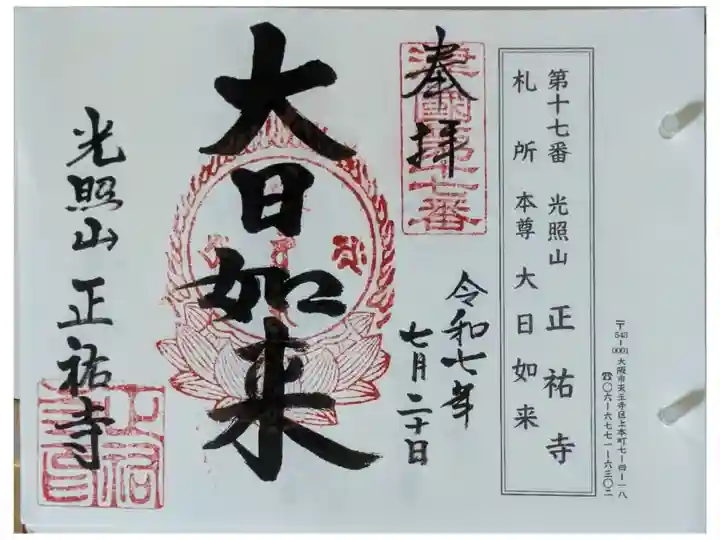 〒543-0001 大阪市天王寺区上本町七-四-一八
☎〇六-六七七一-六三〇二
第十七番 光照山 正祐寺
札所本尊 大日如来
奉拝
令和七年
七月二十日
大日如来
光照山 正祐寺